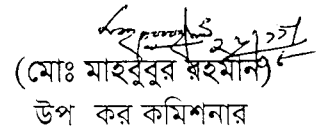 (মোঃ মাহবুবুর রহমান)
উপ কর কমিশনার